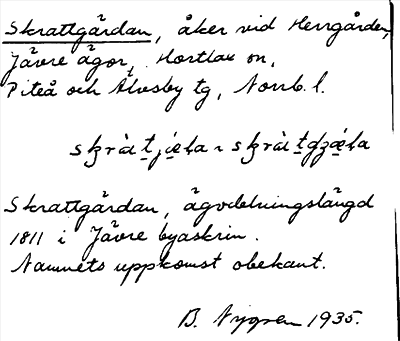 Skrattgårdan, åker vid Herrgården,
Jävre ägor, Hortlax sn,
Piteå och Älvsby tg, Norrb. l.
Skrattgårdan, ägodelningslängd
1811 i Jävre byaskrin.
Namnets uppkomst obekant.
B. Nygren 1935.